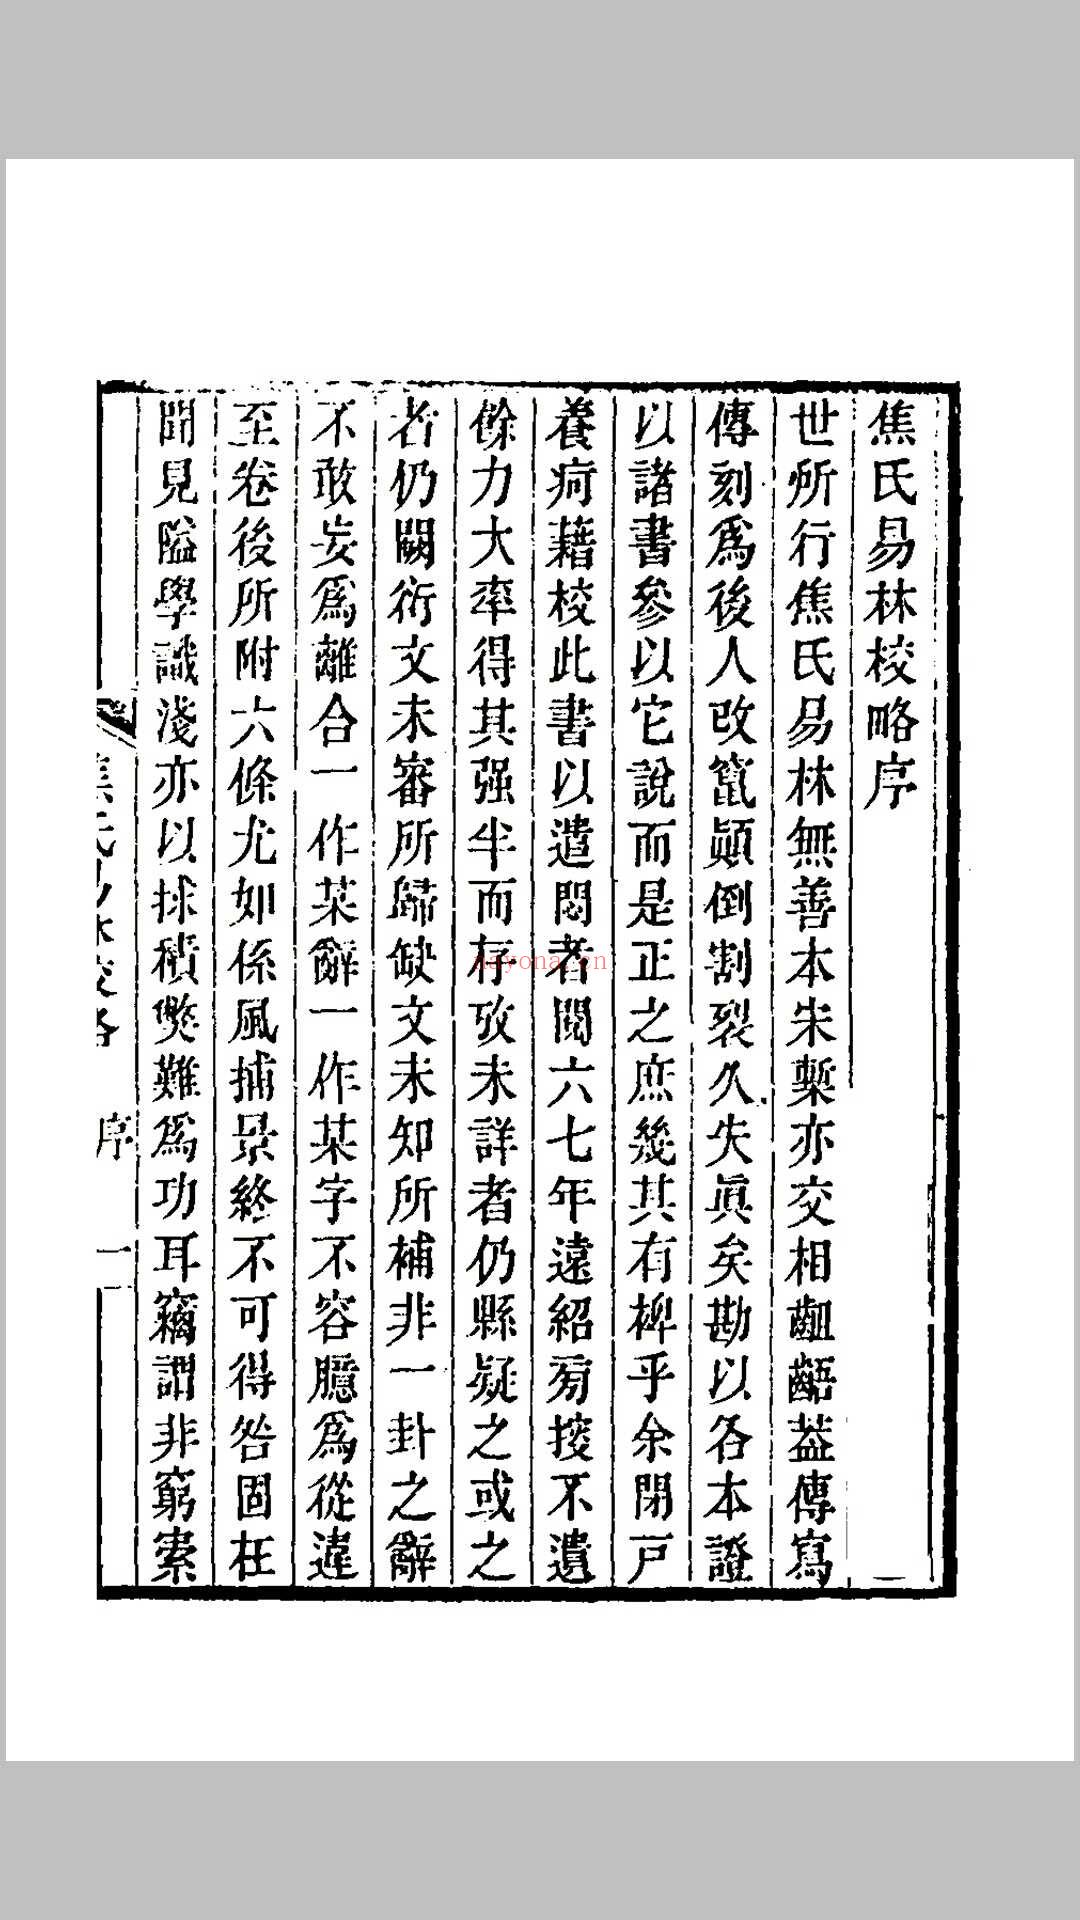 焦氏易林校略序
世所行焦氏易林無善本朱槧亦交相齟齬葢傳寫
傳刻爲後人改竄顚倒割裂久失眞矣勘以各本證
以諸書參以它說而是正之庶幾其有裨乎余閉戸
養疴藉校此書以遣悶者閱六七年遠紹旁搜不遺
餘力大率得其强半而存攷未詳者仍縣疑之或之
者仍闕衍文未審所歸缺文未知所補非一卦之辭
不敢妄爲離合一作某辭一作某字不容臆爲從違
至卷後所附六條尤如係風捕景終不可得咎固在
聞見隘學識淺亦以捄積獘難爲功耳竊謂非窮索
焦氏易林校略 序 一
nayona.cn